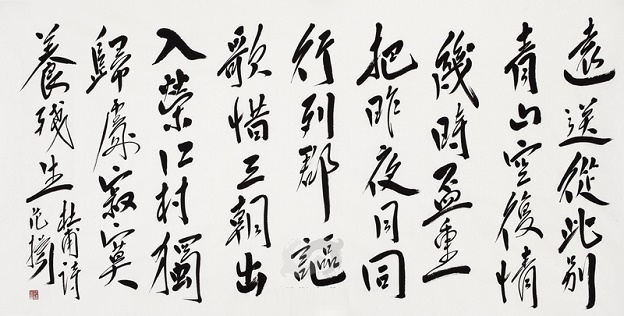 遠送從此別
青山空復情
幾時盃重
把昨夜月同
行列郡謳
歌惜三朝出
入榮江村獨
歸處寂寞
養殘生
杜甫詩